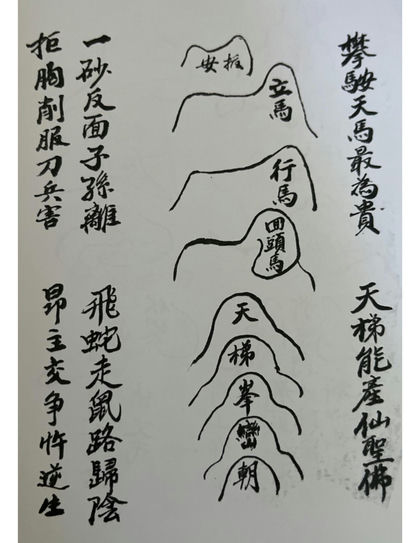 攀鞍天馬最為貴
天梯能產仙聖佛
扳安
立馬
行馬
回頭馬
天
梯
峯
巒
朝
一砂反面子孫離
飛蛇走鼠路歸陰
拒胸削服刀兵害
昂主交争忤逆生